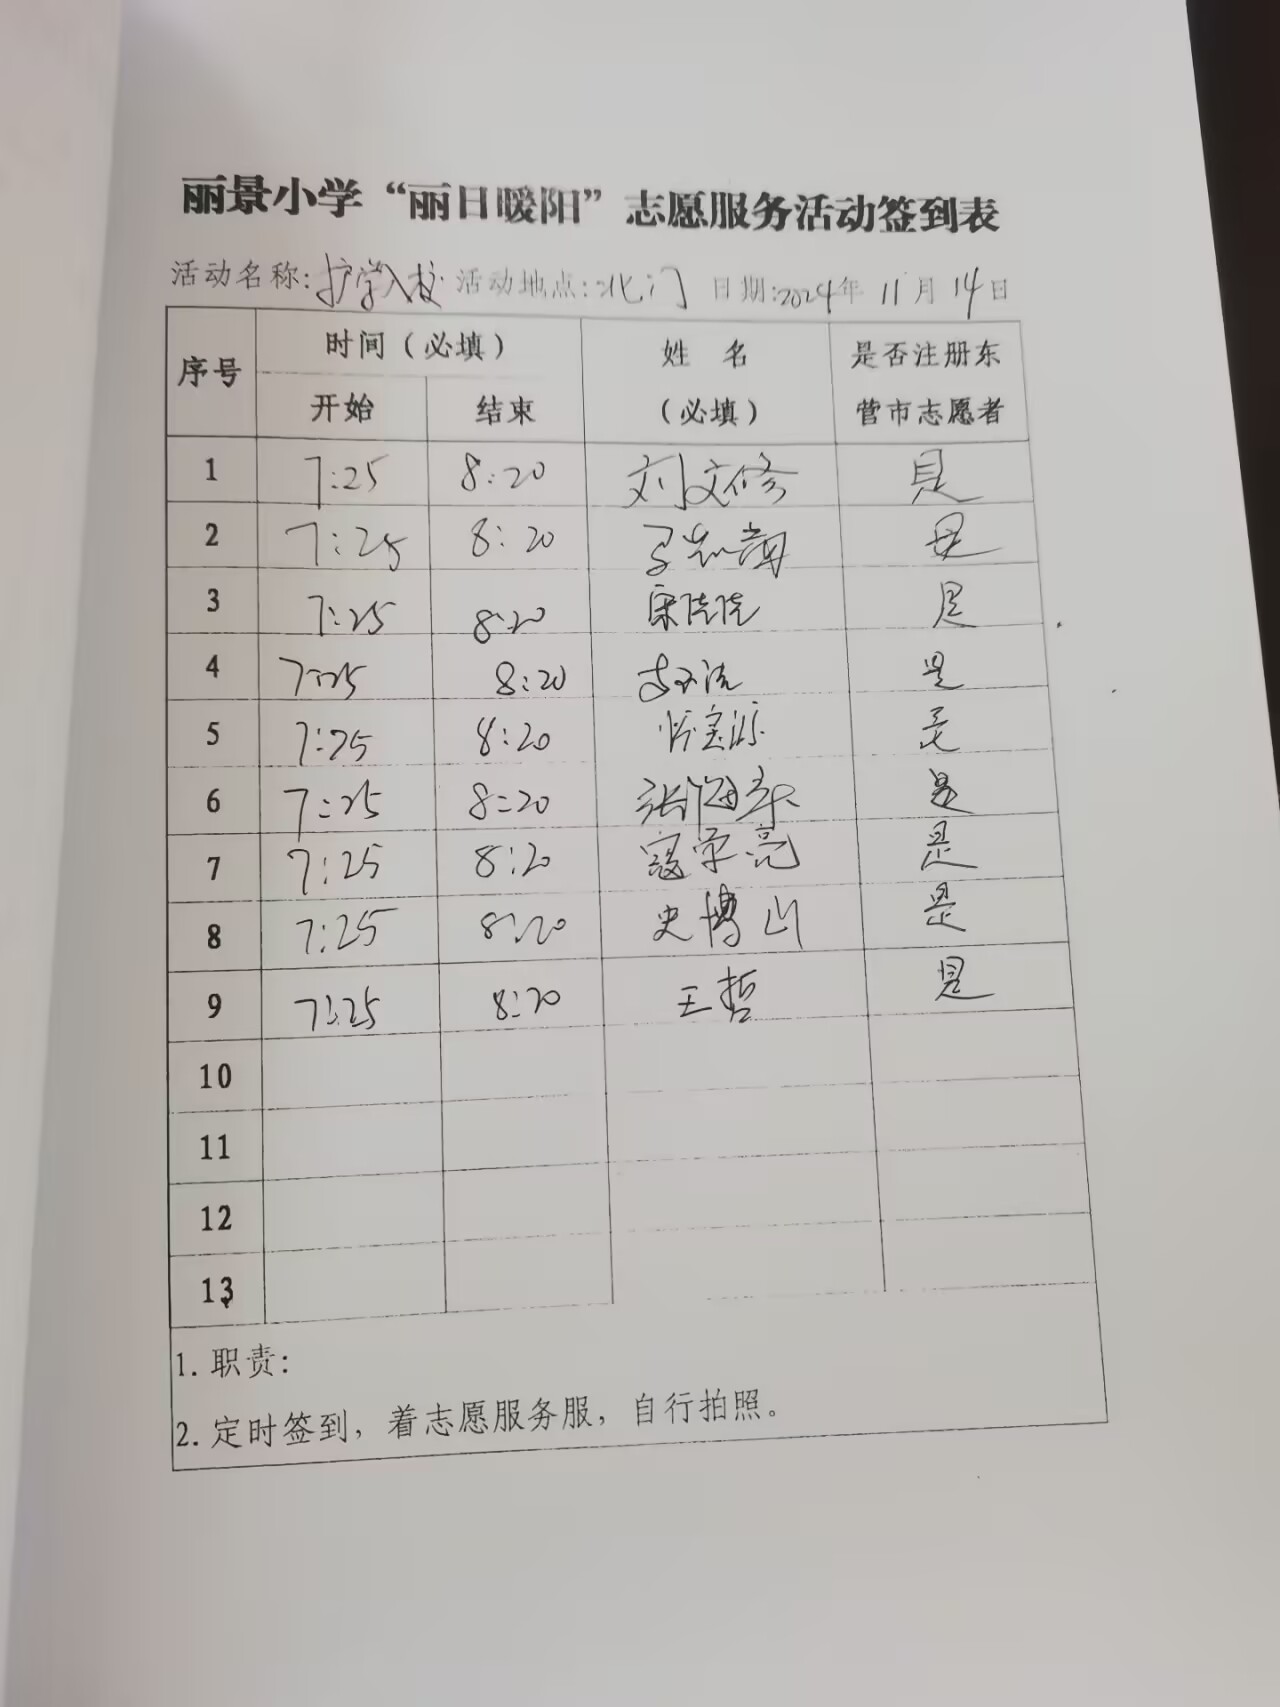 丽景小学“丽日暖阳”志愿服务活动签到表
活动名称:护学入校 活动地点:北门 日期:2024年 11月 14日
序号 时间（必填） 姓 名 是否注册东
开始 结束 （必填） 营市志愿者
1 7:25 8:20 刘文修 是
2 7:25 8:20 是
3 7:25 8:20 是
4 7:25 8:20 是
5 7:25 8:20 是
6 7:25 8:20 是
7 7:25 8:20 寇荣亮 是
8 7:25 8:20 史博山 是
9 7:25 8:20 王哲 是
10
11
12
13
1. 职责:
2. 定时签到，着志愿服务服，自行拍照。